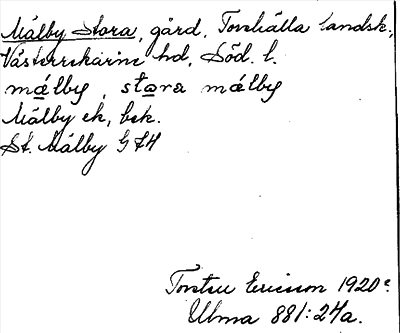 Målby Stora, gård, Torshälla landsk.,
Västerrekarne hd, Söd. l.
målby, stora målby
Målby ek, bek.
St. Målby G74
Torsten Ericsson 1920
Ulma 881:24a.